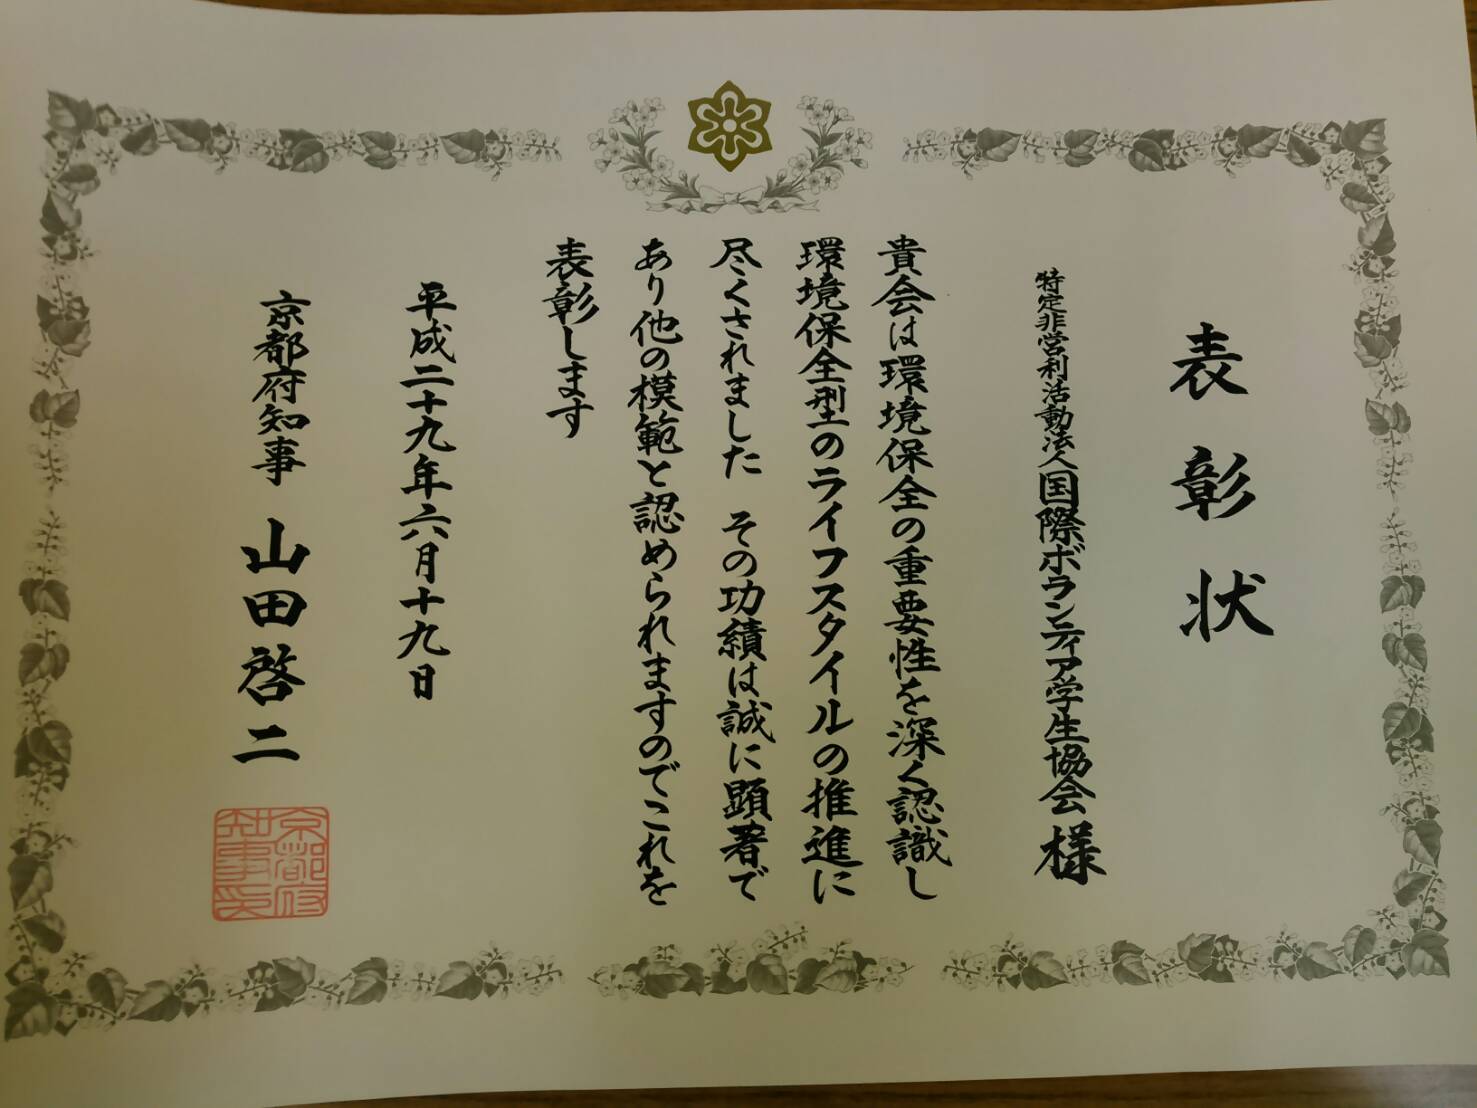 表彰状
特定非営利活動法人国際ボランティア学生協会様
貴会は環境保全の重要性を深く認識し
環境保全型のライフスタイルの推進に
尽くされました その功績は誠に顕著で
あり他の模範と認められますのでこれを
表彰します
平成二十九年六月十九日
京都府知事 山田啓二
京都府
知事印